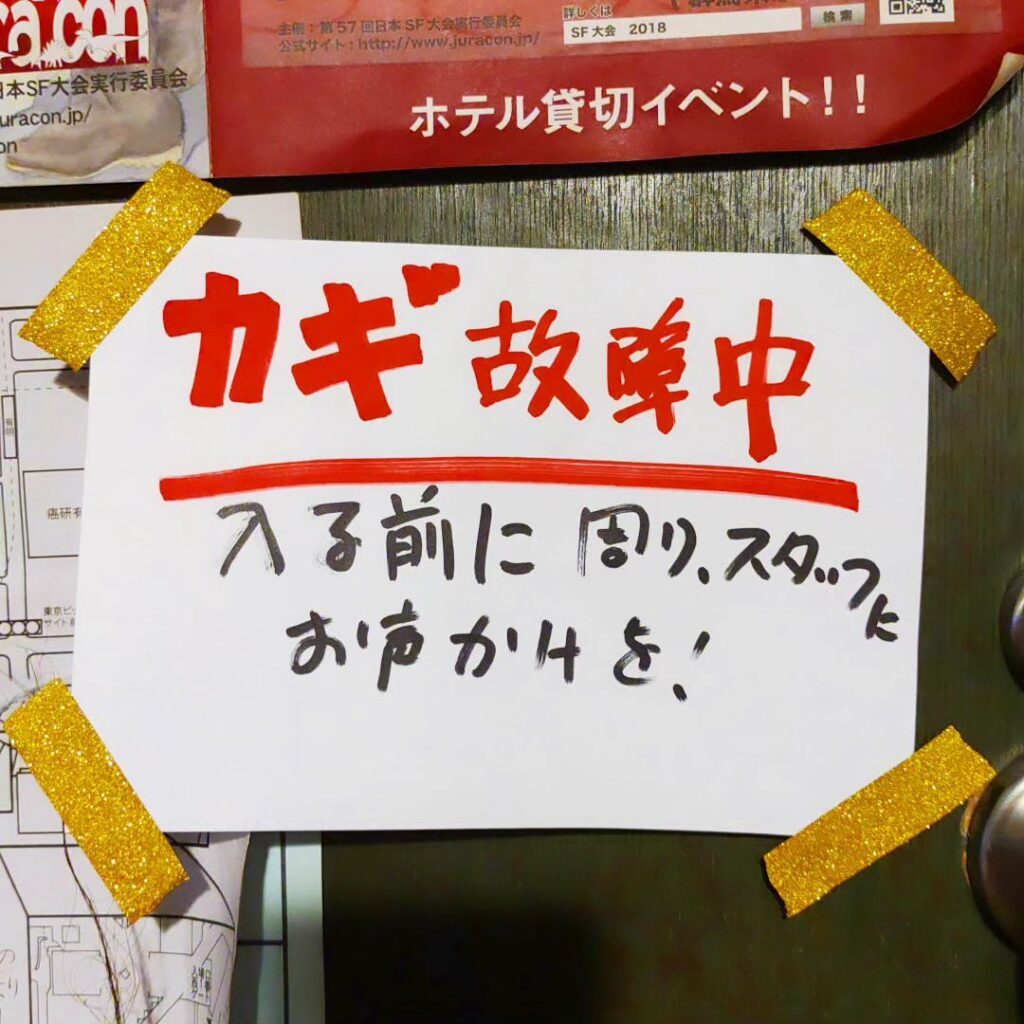 ra.con
日本SF大会実行委員会
juracon.jp/
con
主催：第57回日本SF大会実行委員会
公式サイト：http://www.juracon.jp/
詳しくは
SF大会 2018
検索
ホテル貸切イベント！！
カギ故障中
入る前に周り、スタッフに
お声かけを！
有明
癌研有
東京ビッ
サイト
の
より